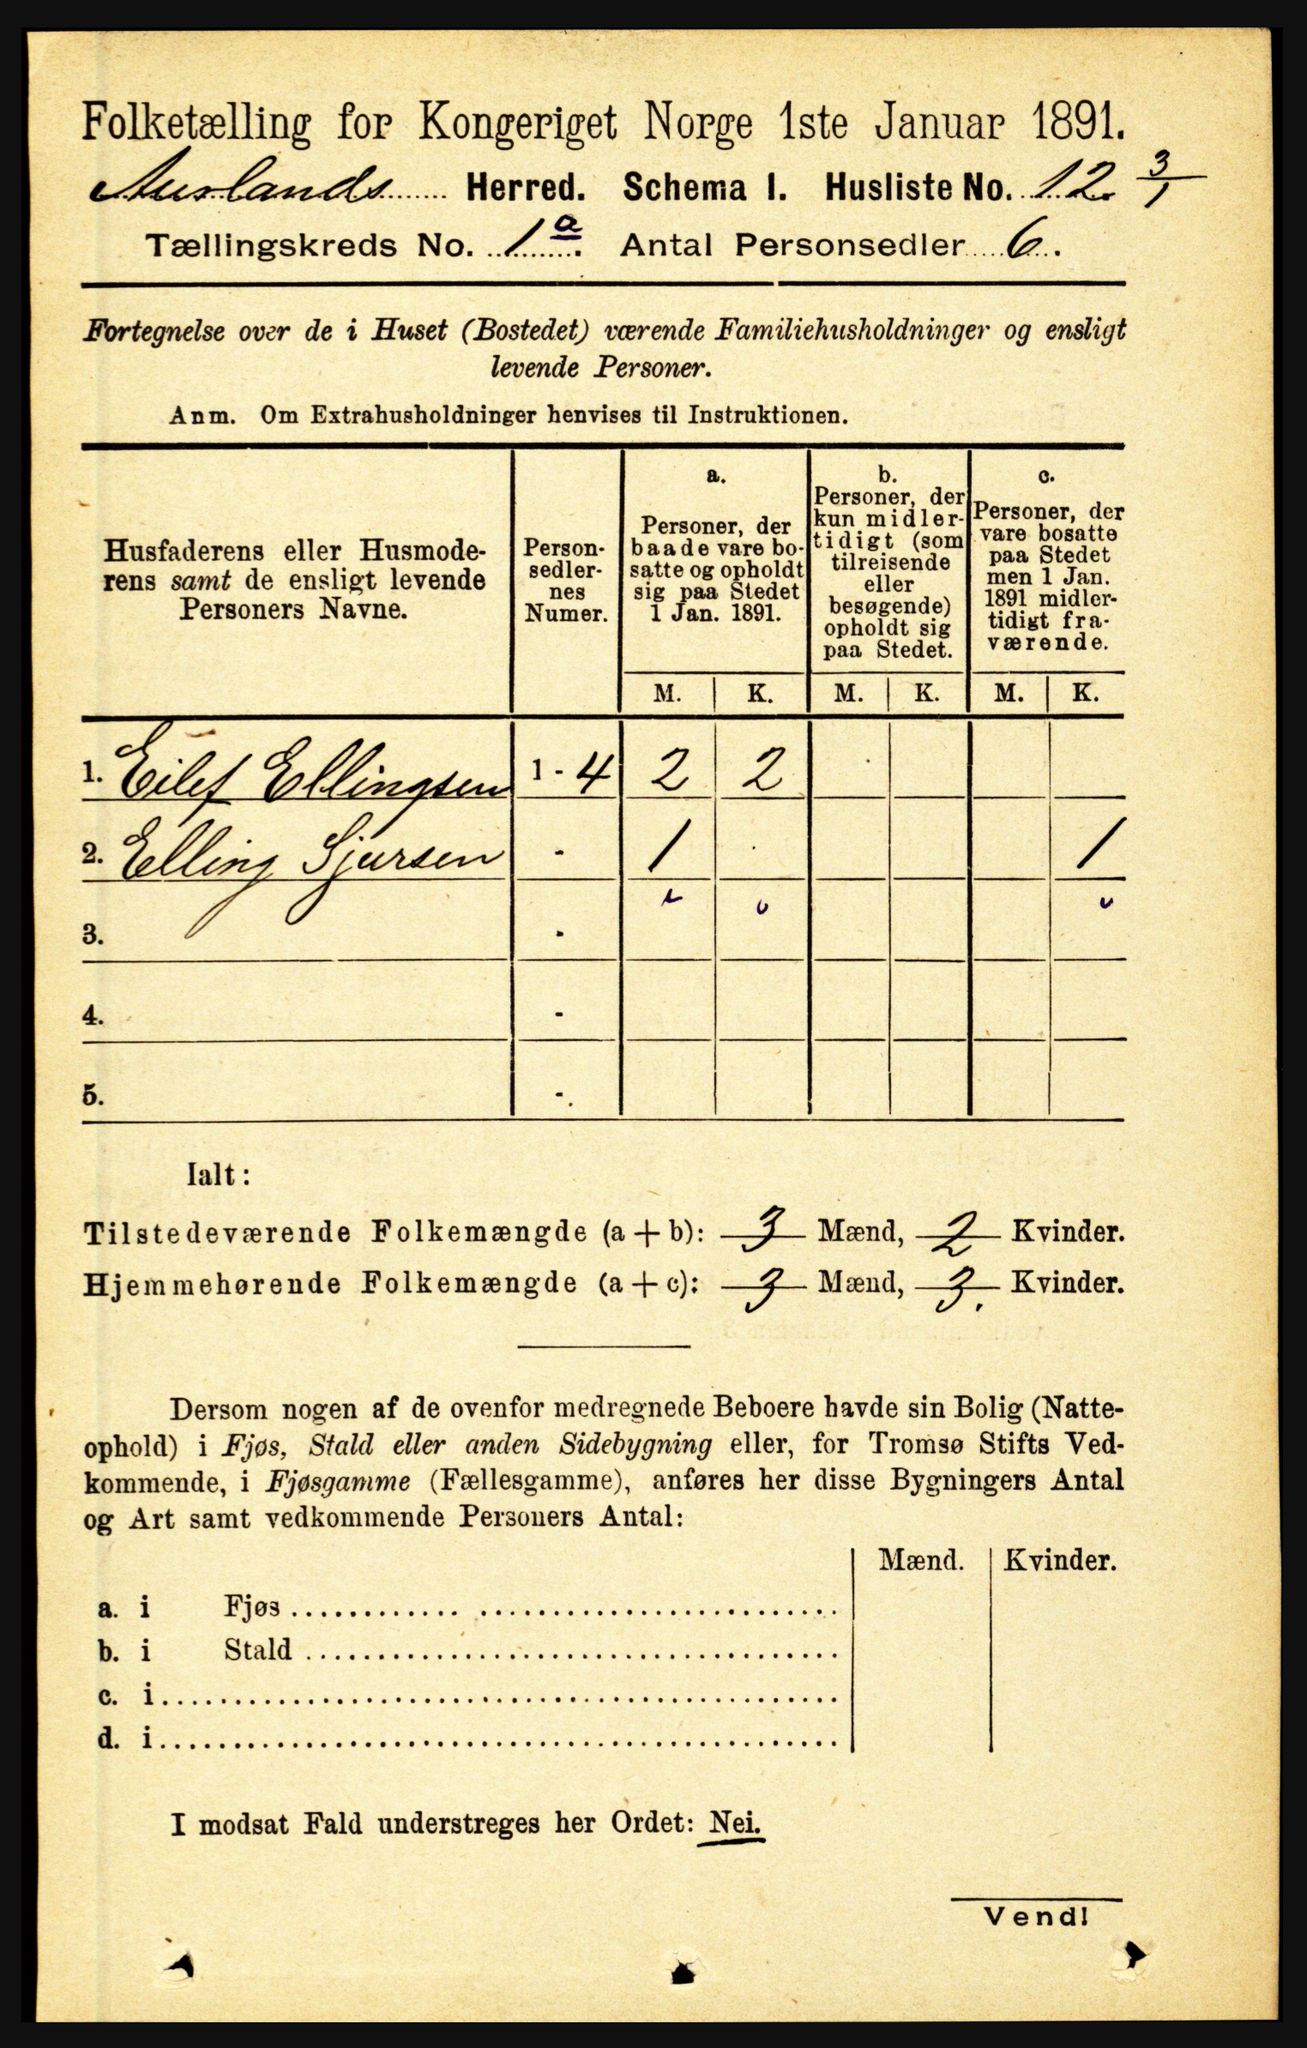 Folketælling for Kongeriget Norge 1ste Januar 1891.
Aurlands Herred. Schema I. Husliste No. 12. 3/1
Tællingskreds No. 1a. Antal Personsedler 6.
Fortegnelse over de i Huset (Bostedet) værende Familiehusholdninger og ensligt
levende Personer.
Anm. Om Extrahusholdninger henvises til Instruktionen.
Husfaderens eller Husmode-
rens samt de ensligt levende
Personers Navne.
Person-
sedler-
nes
Numer.
a.
Personer, der
baade vare bo-
satte og opholdt
sig paa Stedet
1 Jan. 1891.
b.
Personer, der
kun midler-
tidigt (som
tilreisende
eller
besøgende)
opholdt sig
paa Stedet.
c.
Personer, der
vare bosatte
paa Stedet
men 1 Jan.
1891 midler-
tidigt fra-
værende.
M. K. M. K. M. K.
1. Eilef Ellingsen 1 - 4 2 2
2. Elling Sjursen - 1 1
3. -
4. -
5. -
Ialt:
Tilstedeværende Folkemængde (a + b): 3 Mænd, 2 Kvinder.
Hjemmehørende Folkemængde (a + c): 3 Mænd, 3. Kvinder.
Dersom nogen af de ovenfor medregnede Beboere havde sin Bolig (Natte-
ophold) i Fjøs, Stald eller anden Sidebygning eller, for Tromsø Stifts Ved-
kommende, i Fjøsgamme (Fællesgamme), anføres her disse Bygningers Antal
og Art samt vedkommende Personers Antal:
Mænd. Kvinder.
a. i Fjøs
b. i Stald
c. i
d. i
I modsat Fald understreges her Ordet: Nei.
Vend!